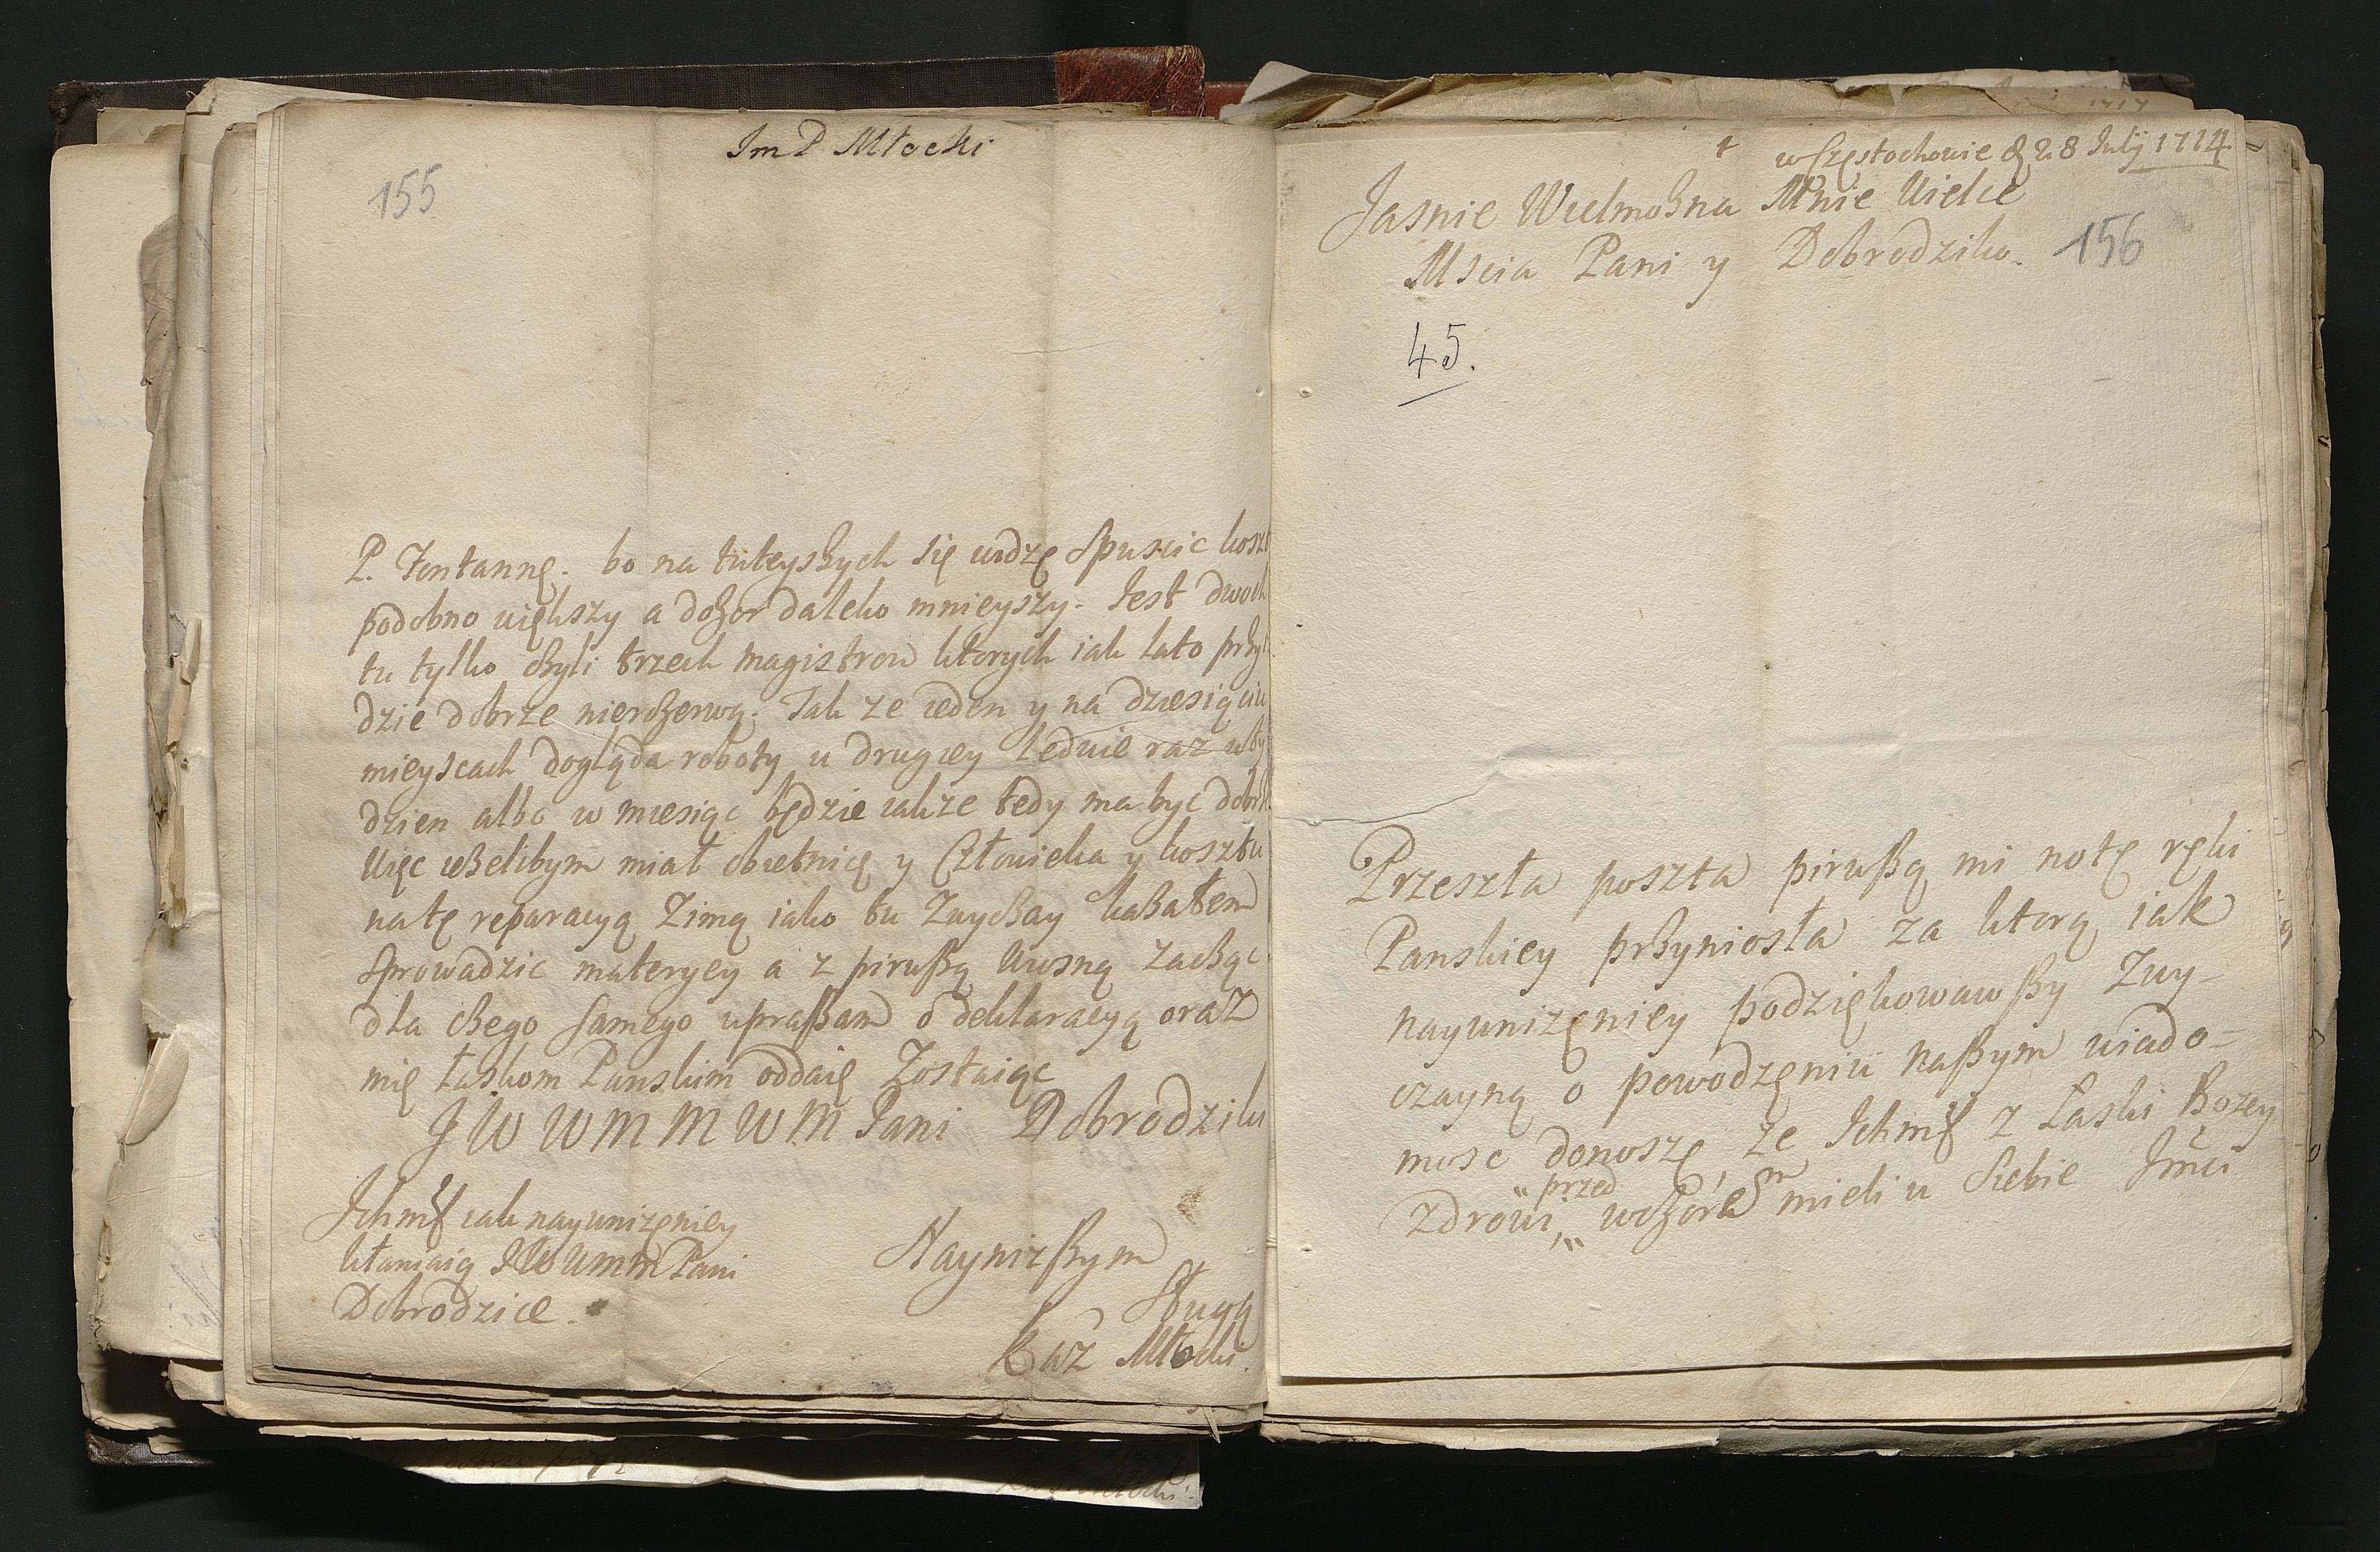 Im P Młocki
155
P. Fontannę. bo na tuteyszych się widzę spuscic kosz
podobno większy a dozor daleko mnieyszy. Jest dwoch
tu tylko czyli trzech magistrow ktorych iak lato przy
dzie dobrze nierozerwą. Tak ze ieden y na dziesiąciu
mieyscach dogląda roboty u drugiey ledwie raz w ty
dzien albo w miesiąc będzie iakze tedy ma byc dobrze
Więc iezelibym miał obietnicę y Człowieka y kosztu
na tę reparacyą Zimą iako tu Zwyczay kazałem
sprowadzic materyey a z pirwszą Wiosną zacząc
dla czego samego upraszam o deklaracyą oraz
mię łaskom Panskim oddaię Zostaiąc
J W W M M W M Pani Dobrodziki
Ichmć iak nayunizeniey
kłaniaią JWWMM Pani
Dobrodzice.
Nayniszszym
Sługą
Kaz Młocki.
+ w Częstochowie d 28 July 1714
Jasnie Wielmozna Mnie Wielce
Mscia Pani y Dobrodziko.
156
45.
Przeszła poszta pirwszą mi notę ręki
Panskiey przyniosła za ktorą iak
nayunizęniey podziękowawszy Zwy-
czayną o powodzęniu naszym wiado-
mosc donoszę, ze Ichmć z Laski Bozey
zdrowi, przed wczorem mieli u siebie Jmci